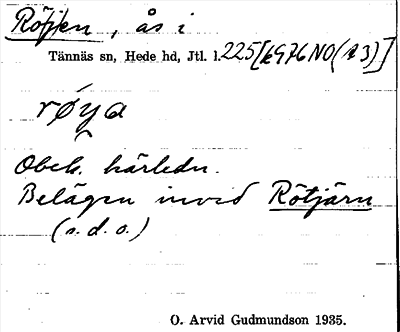 Röjjen, ås i
Tännäs sn, Hede hd, Jtl. l. 225 [k976NO(r3)]
røya
Obek. härledn.
Belägen invid Rötjärn
(s. d. o.)
O. Arvid Gudmundson 1935.